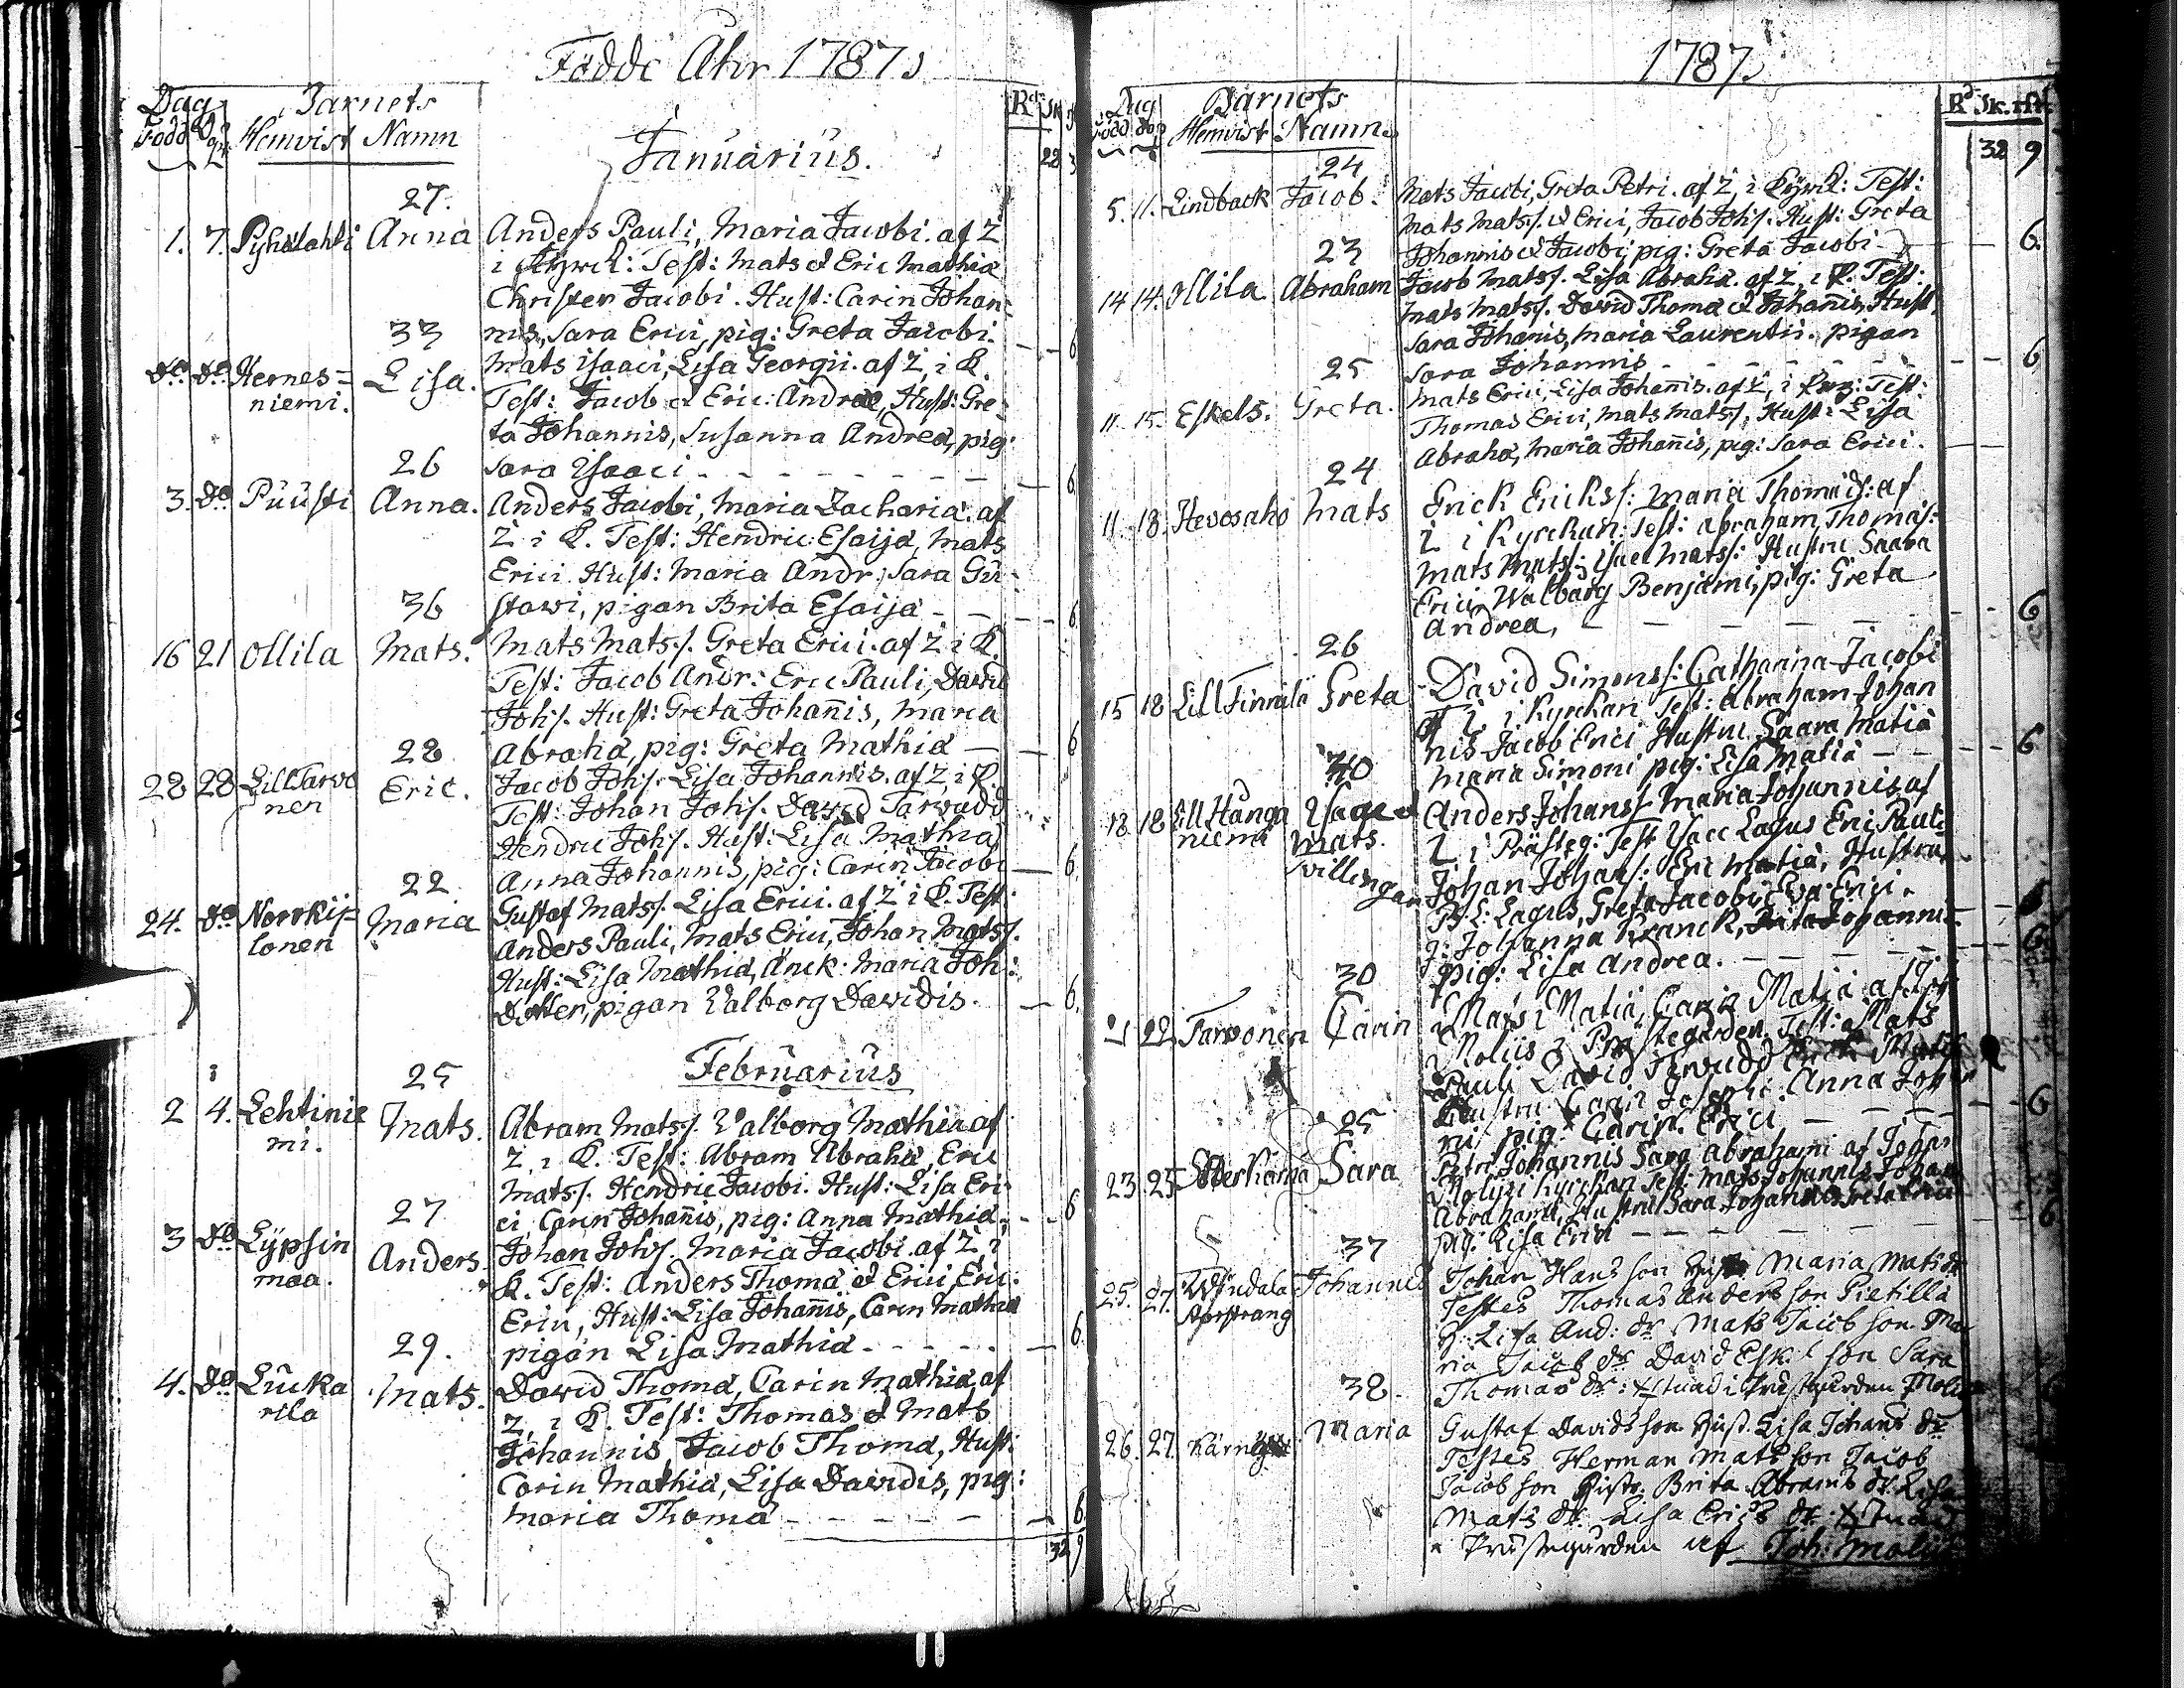 Födde Åhr 1787
Dag Barnets
Född Döpt Hemvist Namn
Rd Sk
Januarius.
22 3
27.
1. 7. Pyhälahti Anna Anders Pauli, Maria Jacobi. af Z
i Kyrck: Test: Mats et Eric Mathiæ
Christer Jacobi. Hust: Carin Johan-
33 nis, Sara Erici, pig: Greta Jacobi. 6
do do Hernes= Lisa. Mats Isaaci, Lisa Georgii. af Z i K.
niemi. Test: Jacob et Eric: Andreæ, Hust: Gre-
ta Johannis, Susanna Andreæ, pig:
26 Sara Isaaci - - - 6
3. do Puusti Anna. Anders Jacobi, Maria Zachariæ. af
Z i K. Test: Hendric: Esaijæ, Mats
Erici. Hust: Maria Andr: Sara Gu-
36 stawi, pigan Brita Esaijæ - - 6
16 21 Ollila Mats. Mats Mats:s. Greta Erici. af Z i K.
Test: Jacob Andr: Eric Pauli, David
Johs. Hust: Greta Johañis, Maria
28 Abrahæ, pig: Greta Mathiæ - 6
28 28 Lill Tarvo Eric. Jacob Johs. Lisa Johannis. af Z, i K.
nen Test: Johan Johs. David Tarvudd
Hendric Johs. Hust: Lisa Mathiæ
Anna Johannis, pig: Carin Jacobi 6
22 Gustaf Mats:s. Lisa Erici. af Z i K. Test:
24. do Norrkij= Maria Anders Pauli, Mats Erici, Johan Mats:s.
lonen Hust: Lisa Mathiæ, Änck: Maria Joh:
Dotter, pigan Valborg Davidis. 6
25 Februarius
2 4. Lehtinie Mats. Abram Mats:s. Valborg Mathiæ af
mi. Z, i K. Test: Abram Abrahæ, Eric
Mats:s. Hendric Jacobi. Hust: Lisa Eri-
27 ci, Carin Johañis, pig: Anna Mathiæ. 6
3 do Lypsin Anders. Johan Johs. Maria Jacobi. af Z, i
maa. K. Test: Anders Thomæ et Erici, Eric:
Erici, Hust: Lisa Johañis, Carin Mathiæ
29. pigan Lisa Mathiæ - - - 6
4. do Lucka Mats. David Thomæ, Carin Mathiæ, af
rila Z, i K. Test: Thomas et Mats
Johannis, Jacob Thomæ, Hust:
Carin Mathiæ, Lisa Davidis, pig:
Maria Thomæ - - - 6
32 9
1787
Dag Barnets
Född Döpt Hemvist Namn
Rd Sk. rst.
32 9
24
5. 11. Lindback Jacob. Mats Jacobi, Greta Petri. af Z, i Kyrck: Test:
Mats Mats:s. et Erici, Jacob Johs. Hust: Greta
23 Johannis et Jacobi, pig: Greta Jacobi 6.
14 14. Ollila Abraham Jacob Mats:s. Lisa Abrahæ. af Z, i K. Test:
Mats Mats:s. David Thomæ et Johañis, Hust.
Sara Johañis, Maria Laurentii. pigan
25 Sara Johannis - - - 6
11. 15. Eskels. Greta. Mats Erici, Lisa Johañis. af Z, i Kyr: Test:
Thomas Erici, Mats Mats:s, Hust: Lisa
Abrahæ, Maria Johañis, pig: Sara Erici.
24
11. 18. Hevosaho Mats Erick Ericks: Maria Thomæ: af
Z i Kyrckan: Test: Abraham Thomas:
Mats Mats:s; Isac Mats: Hustru Saara
Erici, Walborg Benjami, pig: Greta
Andreæ, - - - 6
26
15 18 Lill Finnilä Greta David Simons: Catharina Jacobi
af Z. i Kyrckan Test: Abraham Johan
nis Jacob Erici Hustru Saara Matiæ
40 Maria Simoni pig: Lisa Matiæ - - 6
18. 18 Lill Hänga Isac et Anders Johans: Maria Johannis af
niemi Mats. Z i Prästeg: Test Isacc Lagus Eric Pauli
tvillingar Johan Johans: Eric Matiæ, Hustru
B: L: Lagus, Greta Jacobi Eva Erici.
j: Johanna Kranck,
30 pig: Lisa Andreæ. - - - 6.
21 22. Tarvonen Carin Mats Matiæ, Carin Matiæ af Joh
Moliis i Prästegården. Test: Mats
Pauli David Tarvudd
Hustru Carin Josephi. Anna Johan
25 ni pig: Carin Erici - - - 6
23. 25 Sara Petri Johannis Sara Abrahami af Johan
Molin i Kyrckan Test: Mats Johannis Johan
Abrahami, Hustru Sara Johannis
37 pig: Lisa Erici - - - 6
25. 27. Johannes Johan Hans son Hust Maria Mats dr
Testes Thomas Anders son Pietilla
H: Lisa And: dr Mats Jacob son Ma
ria Jacob dr David Esk: son Sara
38. Thomas dr: i Prästgården Molin
26. 27. Maria Gustaf Davids son Hust. Lisa Johans dr
Testes Herman Mats son Jacob
Jacob son Hustr. Brita Abrams dr. Lisa
Mats dr. Lisa Erics dr.
i Prästegården af Joh: Molin